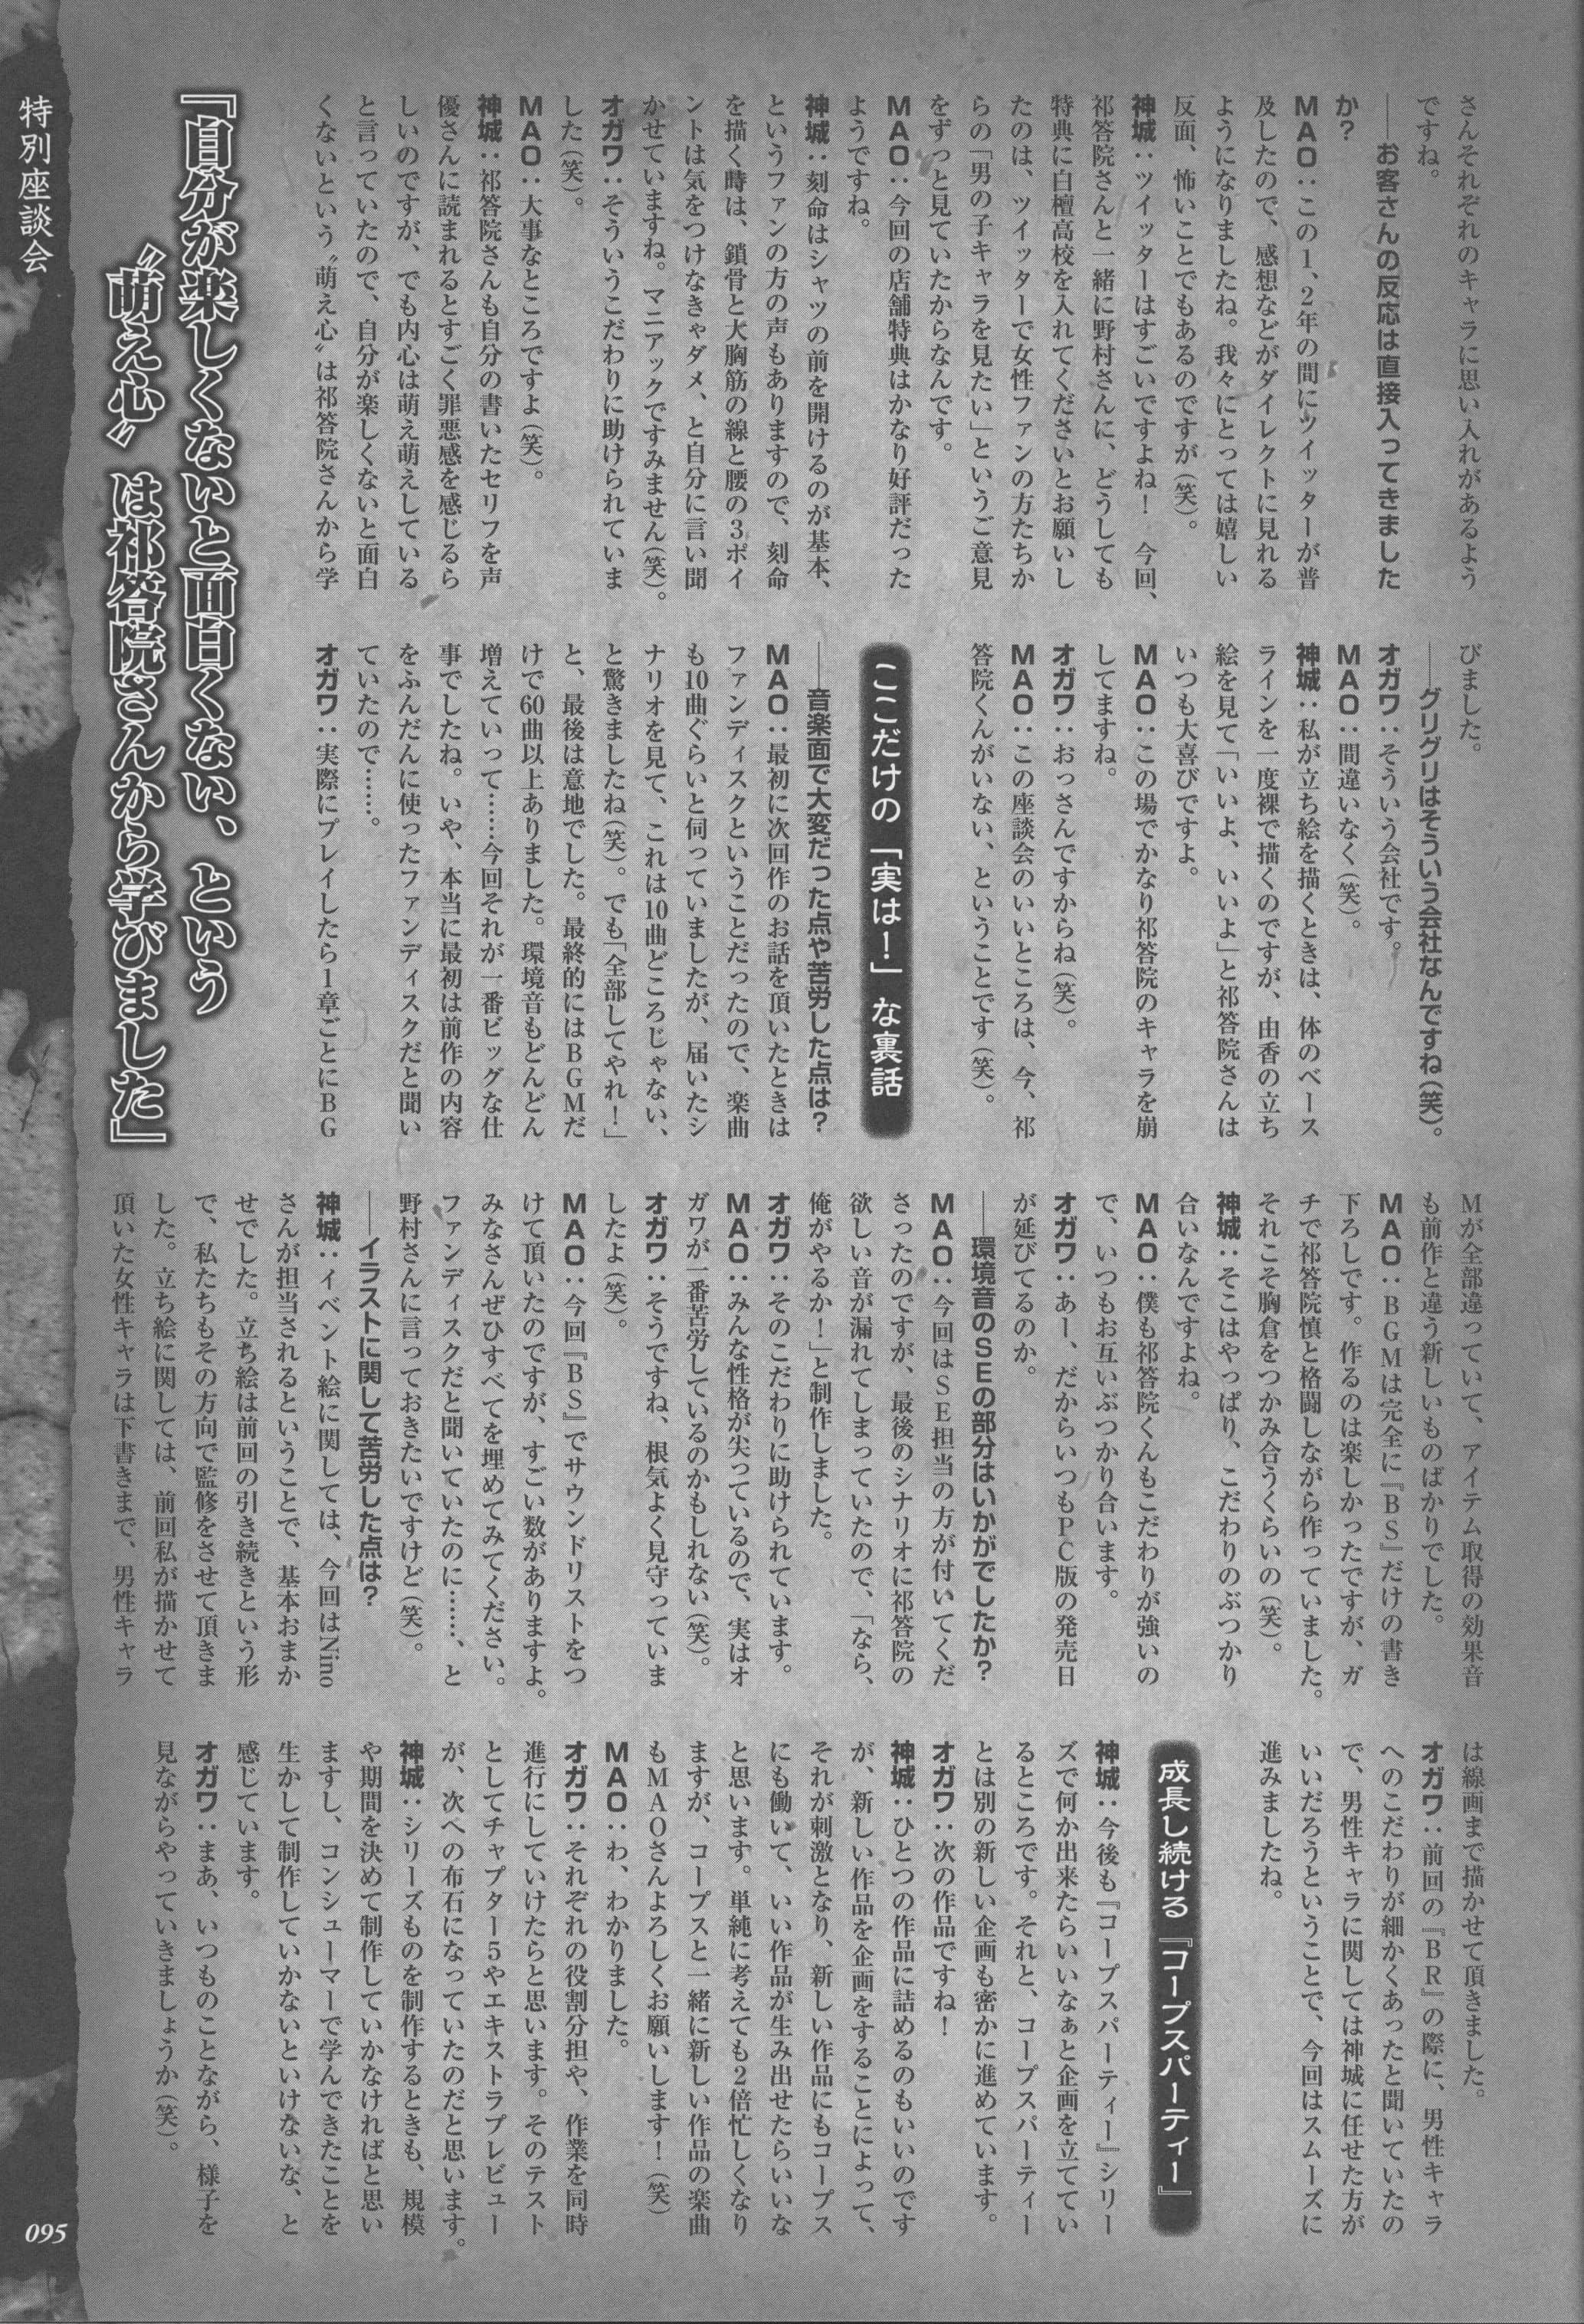 さんそれぞれのキャラに思い入れがあるよう
ですね。
――お客さんの反応は直接入ってきました
か？
ＭＡＯ：この１、２年の間にツイッターが普
及したので、感想などがダイレクトに見れる
ようになりましたね。我々にとっては嬉しい
反面、怖いことでもあるのですが（笑）。
神城：ツイッターはすごいですよね！　今回、
祁答院さんと一緒に野村さんに、どうしても
特典に白檀高校を入れてくださいとお願いし
たのは、ツイッターで女性ファンの方たちか
らの「男の子キャラを見たい」というご意見
をずっと見ていたからなんです。
ＭＡＯ：今回の店舗特典はかなり好評だった
ようですね。
神城：刻命はシャツの前を開けるのが基本、
というファンの方の声もありますので、刻命
を描く時は、鎖骨と大胸筋の線と腰の３ポイ
ントは気をつけなきゃダメ、と自分に言い聞
かせていますね。マニアックですみません（笑）。
オガワ：そういうこだわりに助けられていま
した（笑）。
ＭＡＯ：大事なところですよ（笑）。
神城：祁答院さんも自分の書いたセリフを声
優さんに読まれるとすごく罪悪感を感じるら
しいのですが、でも内心は萌え萌えしている
と言っていたので、自分が楽しくないと面白
くないという〝萌え心〟は祁答院さんから学
びました。
――グリグリはそういう会社なんですね（笑）。
オガワ：そういう会社です。
ＭＡＯ：間違いなく（笑）。
神城：私が立ち絵を描くときは、体のベース
ラインを一度裸で描くのですが、由香の立ち
絵を見て「いいよ、いいよ」と祁答院さんは
いつも大喜びですよ。
ＭＡＯ：この場でかなり祁答院のキャラを崩
してますね。
オガワ：おっさんですからね（笑）。
ＭＡＯ：この座談会のいいところは、今、祁
答院くんがいない、ということです（笑）。
ここだけの「実は！」な裏話
――音楽面で大変だった点や苦労した点は？
ＭＡＯ：最初に次回作のお話を頂いたときは
ファンディスクということだったので、楽曲
も10曲ぐらいと伺っていましたが、届いたシ
ナリオを見て、これは10曲どころじゃない、
と驚きましたね（笑）。でも「全部してやれ！」
と、最後は意地でした。最終的にはＢＧＭだ
けで60曲以上ありました。環境音もどんどん
増えていって……今回それが一番ビッグな仕
事でしたね。いや、本当に最初は前作の内容
をふんだんに使ったファンディスクだと聞い
ていたので……。
オガワ：実際にプレイしたら１章ごとにＢＧ
Ｍが全部違っていて、アイテム取得の効果音
も前作と違う新しいものばかりでした。
ＭＡＯ：ＢＧＭは完全に『ＢＳ』だけの書き
下ろしです。作るのは楽しかったですが、ガ
チで祁答院慎と格闘しながら作っていました。
それこそ胸倉をつかみ合うくらいの（笑）。
神城：そこはやっぱり、こだわりのぶつかり
合いなんですよね。
ＭＡＯ：僕も祁答院くんもこだわりが強いの
で、いつもお互いぶつかり合います。
オガワ：あー、だからいつもＰＣ版の発売日
が延びてるのか。
――環境音のＳＥの部分はいかがでしたか？
ＭＡＯ：今回はＳＥ担当の方が付いてくだ
さったのですが、最後のシナリオに祁答院の
欲しい音が漏れてしまっていたので、「なら、
俺がやるか！」と制作しました。
オガワ：そのこだわりに助けられています。
ＭＡＯ：みんな性格が尖っているので、実はオ
ガワが一番苦労しているのかもしれない（笑）。
オガワ：そうですね、根気よく見守っていま
したよ（笑）。
ＭＡＯ：今回『ＢＳ』でサウンドリストをつ
けて頂いたのですが、すごい数がありますよ。
みなさんぜひすべてを埋めてみてください。
ファンディスクだと聞いていたのに……、と
野村さんに言っておきたいですけど（笑）。
――イラストに関して苦労した点は？
神城：イベント絵に関しては、今回はNino
さんが担当されるということで、基本おまか
せでした。立ち絵は前回の引き続きという形
で、私たちもその方向で監修をさせて頂きま
した。立ち絵に関しては、前回私が描かせて
頂いた女性キャラは下書きまで、男性キャラ
は線画まで描かせて頂きました。
オガワ：前回の『ＢＲ』の際に、男性キャラ
へのこだわりが細かくあったと聞いていたの
で、男性キャラに関しては神城に任せた方が
いいだろうということで、今回はスムーズに
進みましたね。
成長し続ける『コープスパーティー』
神城：今後も『コープスパーティー』シリー
ズで何か出来たらいいなぁと企画を立ててい
るところです。それと、コープスパーティー
とは別の新しい企画も密かに進めています。
オガワ：次の作品ですね！
神城：ひとつの作品に詰めるのもいいのです
が、新しい作品を企画をすることによって、
それが刺激となり、新しい作品にもコープス
にも働いて、いい作品が生み出せたらいいな
と思います。単純に考えても２倍忙しくなり
ますが、コープスと一緒に新しい作品の楽曲
もＭＡＯさんよろしくお願いします！（笑）
ＭＡＯ：わ、わかりました。
オガワ：それぞれの役割分担や、作業を同時
進行にしていけたらと思います。そのテスト
としてチャプター５やエキストラプレビュー
が、次への布石になっていたのだと思います。
神城：シリーズものを制作するときも、規模
や期間を決めて制作していかなければと思い
ますし、コンシューマーで学んできたことを
生かして制作していかないといけないな、と
感じています。
オガワ：まあ、いつものことながら、様子を
見ながらやっていきましょうか（笑）。
「自分が楽しくないと面白くない、という
〝萌え心〟は祁答院さんから学びました」
特別座談会
095